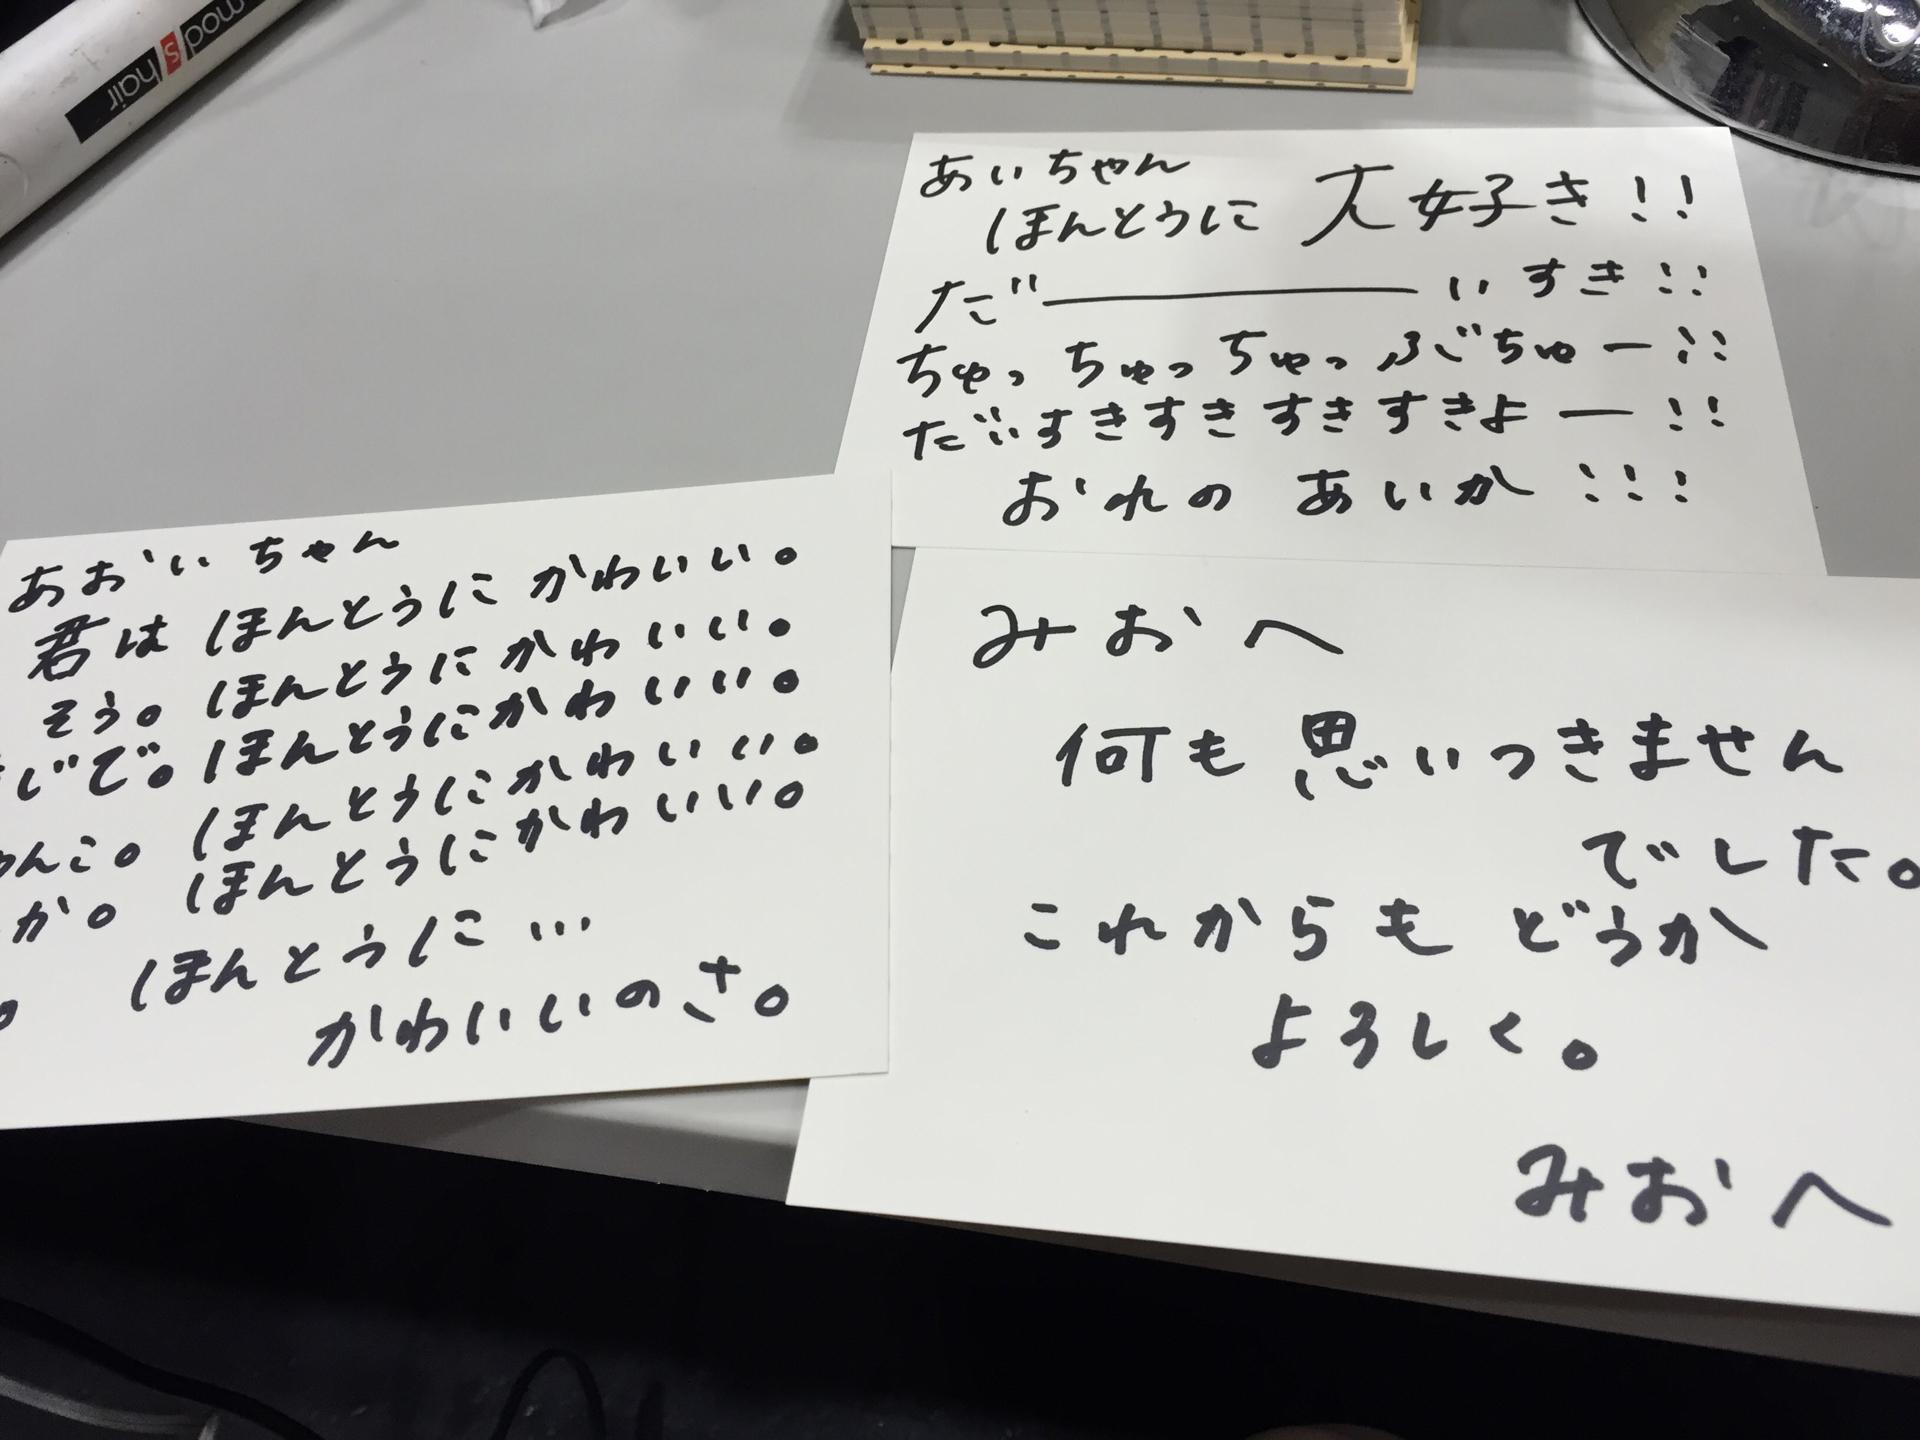 mod's hair
あいちゃん
ほんとうに 大好き!!
だ――――いすき!!
ちゅっ ちゅっ ちゅっ ぶちゅー!!
だいすきすきすきすきよー!!
おれの あいか!!!
あおいちゃん
君は ほんとうに かわいい。
そう。ほんとうにかわいい。
じで。ほんとうにかわいい。
んこ。ほんとうにかわいい。
か。ほんとうにかわいい。
ほんとうに…
かわいいのさ。
みおへ
何も思いつきません
でした。
これからも どうか
よろしく。
みおへ